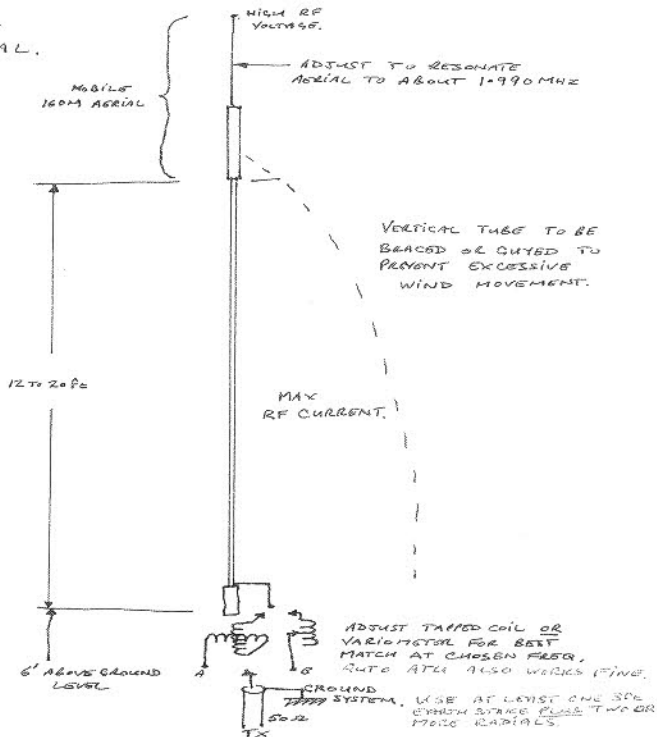 AL.
HIGH RF
VOLTAGE.
MOBILE
160M AERIAL
ADJUST TO RESONATE
AERIAL TO ABOUT 1.990 MHZ
VERTICAL TUBE TO BE
BRACED OR GUYED TO
PREVENT EXCESSIVE
WIND MOVEMENT.
12 TO 20 ft
MAX
RF CURRENT.
ADJUST TAPPED COIL OR
VARIOMETER FOR BEST
MATCH AT CHOSEN FREQ.
AUTO ATU ALSO WORKS FINE.
6' ABOVE GROUND
LEVEL
A
B
GROUND
SYSTEM.
USE AT LEAST ONE 3ft
EARTH STAKE PLUS TWO OR
MORE RADIALS.
50Ω
TX